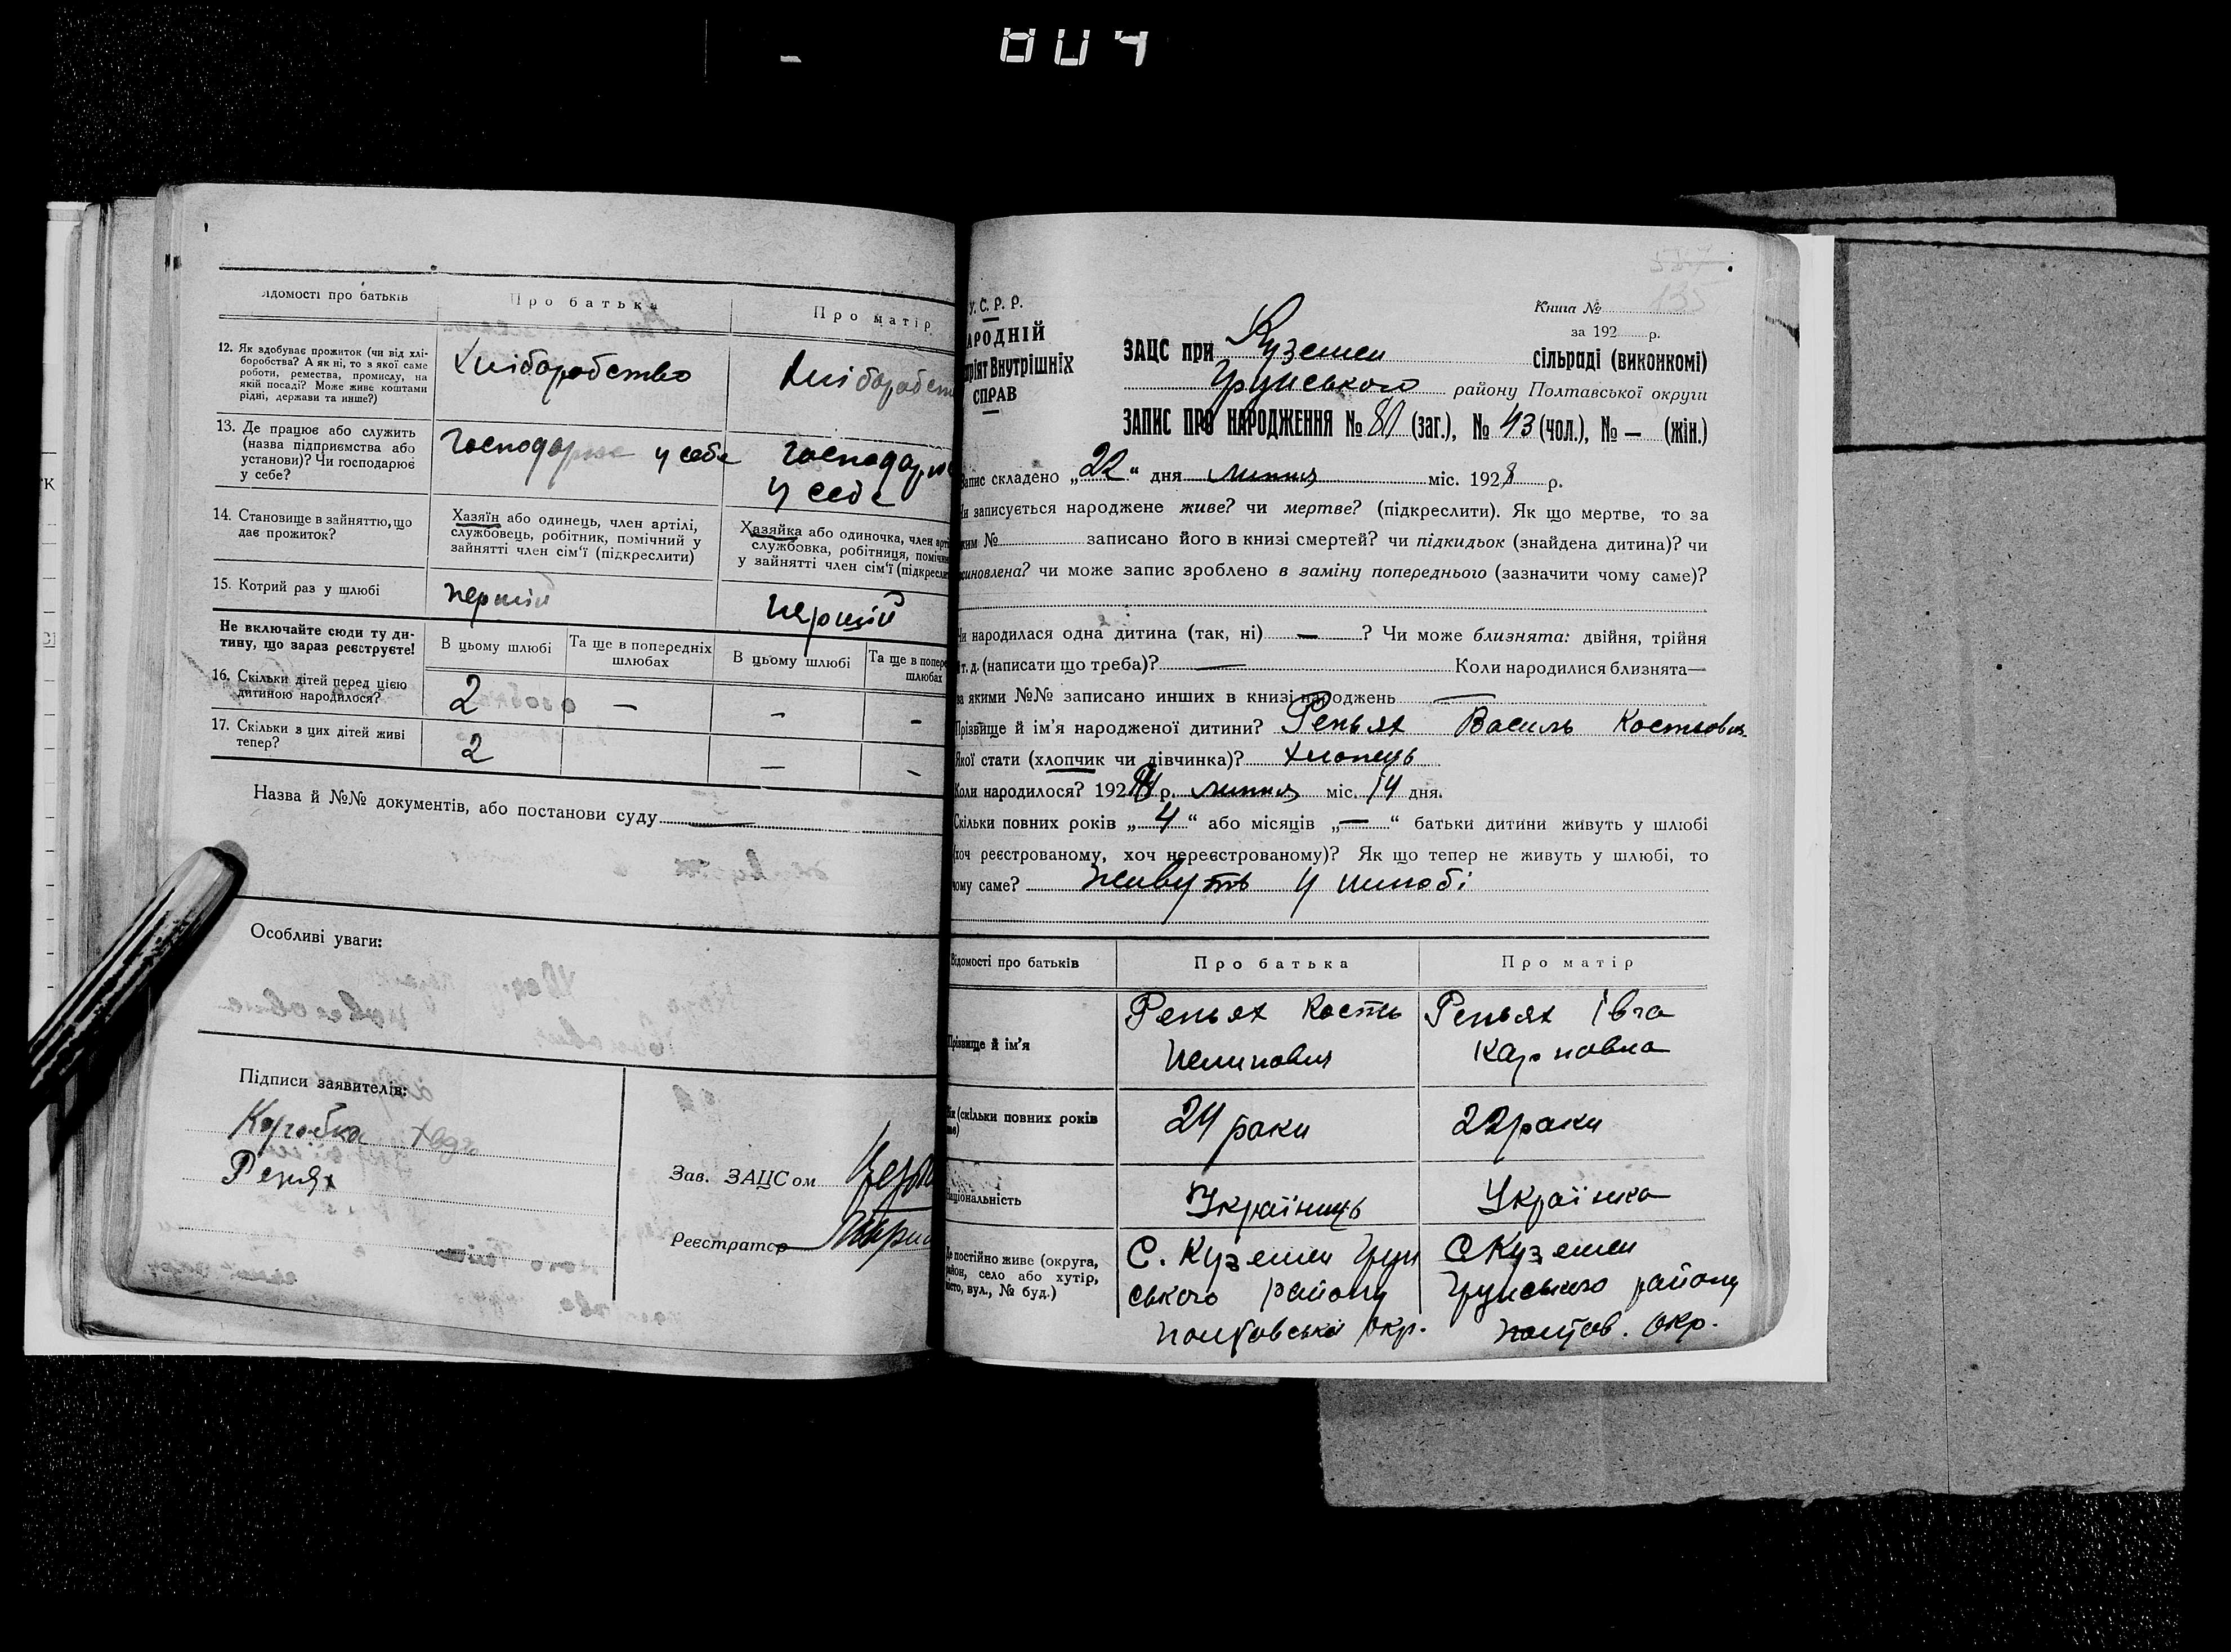 004
ідомості про батьків
Про батька
Про матір
12. Як здобуває прожиток (чи від хлі-
боробства? А як ні, то з якої саме
роботи, ремества, промислу, на
якій посаді? Може живе коштами
рідні, держави та инше?)
Хліборобство
Хліборобст
13. Де працює або служить
(назва підприємства або
установи)? Чи господарює
у себе?
Господарює у себе
господарює
у себе
14. Становище в зайняттю, що
дає прожиток?
Хазяїн або одинець, член артілі,
службовець, робітник, помічний у
зайнятті член сім'ї (підкреслити)
Хазяйка або одиночка, член арті
службовка, робітниця, помічн
у зайнятті член сім'ї (підкресли
15. Котрий раз у шлюбі
перший
перший
Не включайте сюди ту ди-
тину, що зараз реєструєте!
В цьому шлюбі
Та ще в попередніх
шлюбах
В цьому шлюбі
Та ще в попере
шлюбах
16. Скільки дітей перед цією
дитиною народилося?
2 — — -
17. Скільки з цих дітей живі
тепер?
2 — -
Назва й №№ документів, або постанови суду
Особливі уваги:
Підписи заявителів:
Коробка
Репях
Зав. ЗАЦСом
Реєстратор
135
У.С.Р.Р.
АРОДНІЙ
ріят Внутрішніх
СПРАВ
Книга №
за 192 р.
ЗАЦС при Куземен сільраді (виконкомі)
Грунського району Полтавської округи
ЗАПИС ПРО НАРОДЖЕННЯ № 80 (заг.), № 43 (чол.), № — (жін.)
Запис складено „22“ дня липня міс. 1928 р.
Чи записується народжене живе? чи мертве? (підкреслити). Як що мертве, то за
ким № записано його в книзі смертей? чи підкидьок (знайдена дитина)? чи
синовлена? чи може запис зроблено в заміну попереднього (зазначити чому саме)?
Чи народилася одна дитина (так, ні) — ? Чи може близнята: двійня, трійня
і т. д. (написати що треба)? — Коли народилися близнята—
за якими №№ записано инших в книзі народжень —
Прізвище й ім'я народженої дитини? Репьях Василь Костьович
Якої стати (хлопчик чи дівчинка)? хлопець
Коли народилося? 1928 р. липня міс. 14 дня.
Скільки повних років „4“ або місяців „—“ батьки дитини живуть у шлюбі
хоч реєстрованому, хоч нереєстрованому)? Як що тепер не живуть у шлюбі, то
чому саме? живуть у шлюбі
Відомості про батьків
Про батька
Про матір
Прізвище й ім'я
Репьях Кость
Пилипович
Репьях Івга
Карповна
Вік (скільки повних років
24 роки
22 роки
Національність
Українець
Українка
Де постійно живе (округа,
район, село або хутір,
місто, вул., № буд.)
С. Куземен Грун
ського району
Полтавської окр.
С Куземен
Грунського району
Полтав. окр.